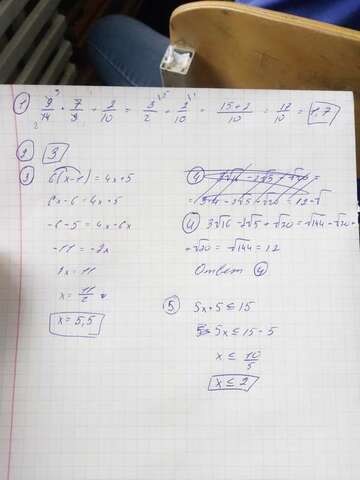 ① 9/14 · 7/3 + 2/10 = 3/2 + 2/10 = 15+2/10 = 17/10 = 1,7
② 3
③ 6(x-1) = 4x+5
6x-6=4x+5
-6-5=4x-6x
-11=-2x
2x=11
x=11/2
x=5,5
④ 3√16 - 2√5 + √20 = √144 - √20 +
+√20 = √144 = 12
Ответ ④
⑤ 5x+5≤15
5x≤15-5
x≤10/5
x≤2